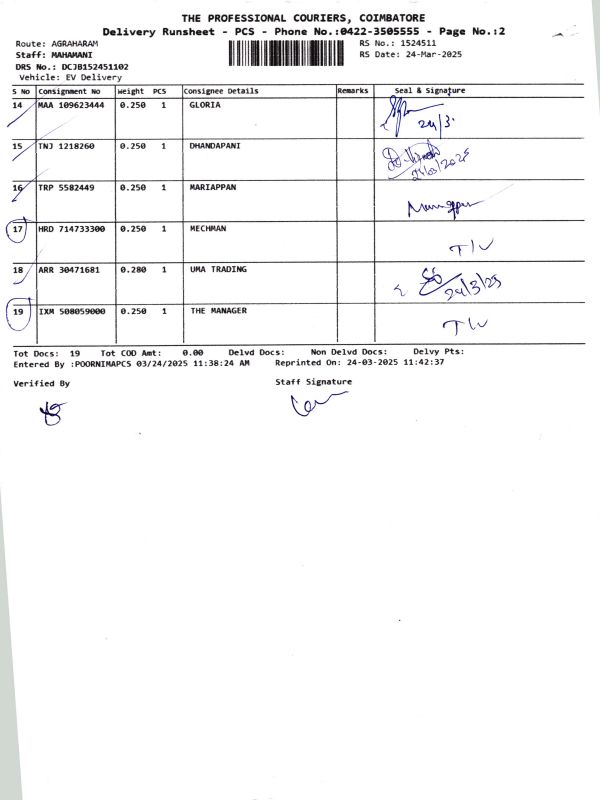 THE PROFESSIONAL COURIERS, COIMBATORE
Delivery Runsheet - PCS - Phone No.:0422-3505555 - Page No.:2
Route: AGRAHARAM RS No.: 1524511
Staff: MAHAMANI RS Date: 24-Mar-2025
DRS No.: DCJB152451102
Vehicle: EV Delivery
S No Consignment No Weight PCS Consignee Details Remarks Seal & Signature
14 MAA 109623444 0.250 1 GLORIA
24/3
15 TNJ 1218260 0.250 1 DHANDAPANI
24/03/2025
16 TRP 5582449 0.250 1 MARIAPPAN
17 HRD 714733300 0.250 1 MECHMAN
T/V
18 ARR 30471681 0.280 1 UMA TRADING
24/3/25
19 IXM 508059000 0.250 1 THE MANAGER
T/V
Tot Docs: 19 Tot COD Amt: 0.00 Delvd Docs: Non Delvd Docs: Delvy Pts:
Entered By :POORNIMAPCS 03/24/2025 11:38:24 AM Reprinted On: 24-03-2025 11:42:37
Verified By Staff Signature